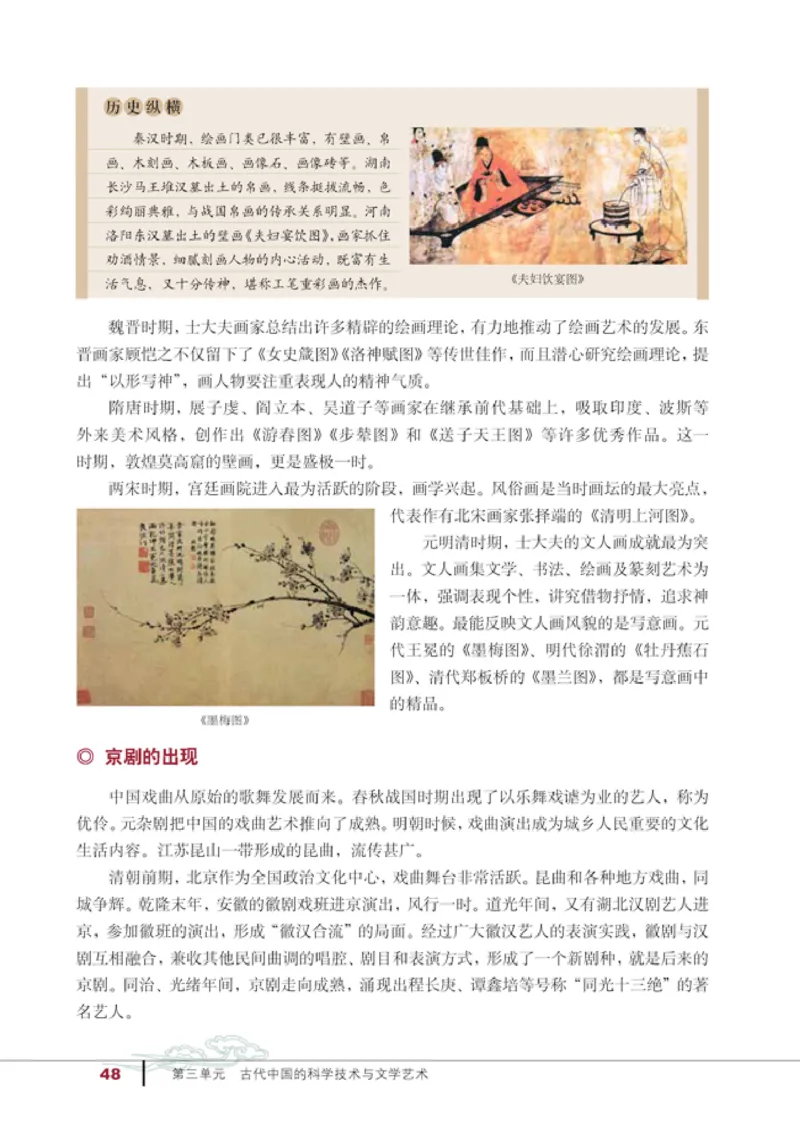 历史纵横
秦汉时期，绘画门类已很丰富，有壁画、帛
画、木刻画、木板画、画像石、画像砖等。湖南
长沙马王堆汉墓出土的帛画，线条挺拔流畅，色
彩绚丽典雅，与战国帛画的传承关系明显。河南
洛阳东汉墓出土的壁画《夫妇宴饮图》，画家抓住
劝酒情景，细腻刻画人物的内心活动，既富有生
活气息，又十分传神，堪称工笔重彩画的杰作。
《夫妇饮宴图》
魏晋时期，士大夫画家总结出许多精辟的绘画理论，有力地推动了绘画艺术的发展。东
晋画家顾恺之不仅留下了《女史箴图》《洛神赋图》等传世佳作，而且潜心研究绘画理论，提
出“以形写神”，画人物要注重表现人的精神气质。
隋唐时期，展子虔、阎立本、吴道子等画家在继承前代基础上，吸取印度、波斯等
外来美术风格，创作出《游春图》《步辇图》和《送子天王图》等许多优秀作品。这一
时期，敦煌莫高窟的壁画，更是盛极一时。
两宋时期，宫廷画院进入最为活跃的阶段，画学兴起。风俗画是当时画坛的最大亮点，
代表作有北宋画家张择端的《清明上河图》。
元明清时期，士大夫的文人画成就最为突
出。文人画集文学、书法、绘画及篆刻艺术为
一体，强调表现个性，讲究借物抒情，追求神
韵意趣。最能反映文人画风貌的是写意画。元
代王冕的《墨梅图》、明代徐渭的《牡丹蕉石
图》、清代郑板桥的《墨兰图》，都是写意画中
的精品。
《墨梅图》
◎ 京剧的出现
中国戏曲从原始的歌舞发展而来。春秋战国时期出现了以乐舞戏谑为业的艺人，称为
优伶。元杂剧把中国的戏曲艺术推向了成熟。明朝时候，戏曲演出成为城乡人民重要的文化
生活内容。江苏昆山一带形成的昆曲，流传甚广。
清朝前期，北京作为全国政治文化中心，戏曲舞台非常活跃。昆曲和各种地方戏曲，同
城争辉。乾隆末年，安徽的徽剧戏班进京演出，风行一时。道光年间，又有湖北汉剧艺人进
京，参加徽班的演出，形成“徽汉合流”的局面。经过广大徽汉艺人的表演实践，徽剧与汉
剧互相融合，兼收其他民间曲调的唱腔、剧目和表演方式，形成了一个新剧种，就是后来的
京剧。同治、光绪年间，京剧走向成熟，涌现出程长庚、谭鑫培等号称“同光十三绝”的著
名艺人。
48 第三单元 古代中国的科学技术与文学艺术